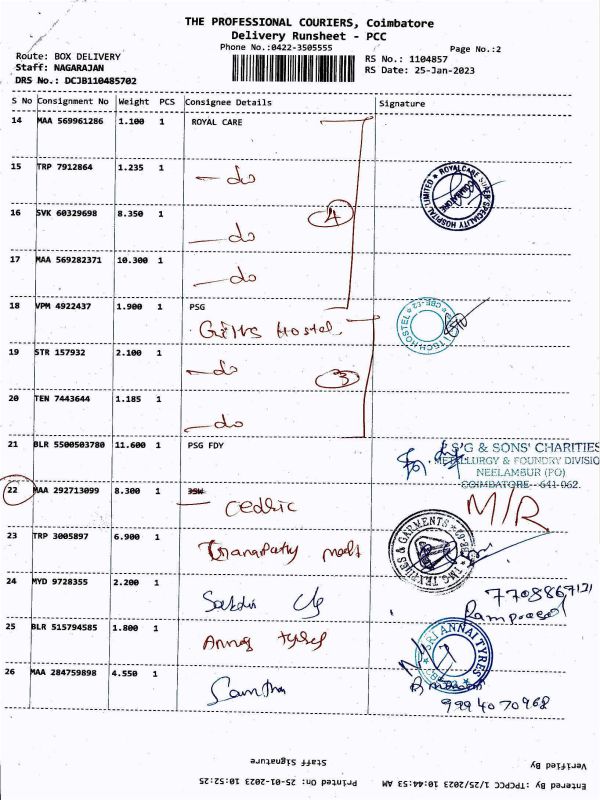 THE PROFESSIONAL COURIERS, Coimbatore
Delivery Runsheet - PCC
Phone No.:0422-3505555
Page No.:2
Route: BOX DELIVERY
Staff: NAGARAJAN
DRS No.: DCJB110485702
RS No.: 1104857
RS Date: 25-Jan-2023
S No Consignment No Weight PCS Consignee Details Signature
14 MAA 569961286 1.100 1 ROYAL CARE
15 TRP 7912864 1.235 1 - do
16 SVK 60329698 8.350 1 - do
4
17 MAA 569282371 10.300 1 - do
ROYALCARE SUPER SPECIALITY HOSPITAL LIMITED
18 VPM 4922437 1.900 1 PSG
Girls Hostel
19 STR 157932 2.100 1 - do
3
20 TEN 7443644 1.185 1 - do
21 BLR 5500503780 11.600 1 PSG FDY
S'G & SONS' CHARITIES
METALLURGY & FOUNDRY DIVISIO
NEELAMBUR (PO)
COIMBATORE - 641 062.
22 MAA 292713099 8.300 1 Cedric
M/R
23 TRP 3005897 6.900 1
24 MYD 9728355 2.200 1
Ramprasad
25 BLR 515794585 1.800 1
SRI ANNAI TYRES
26 MAA 284759898 4.550 1
9994070968
Staff Signature
Verified By
Printed On: 25-01-2023 10:52:25
Entered By :TPCPCC 1/25/2023 10:44:53 AM